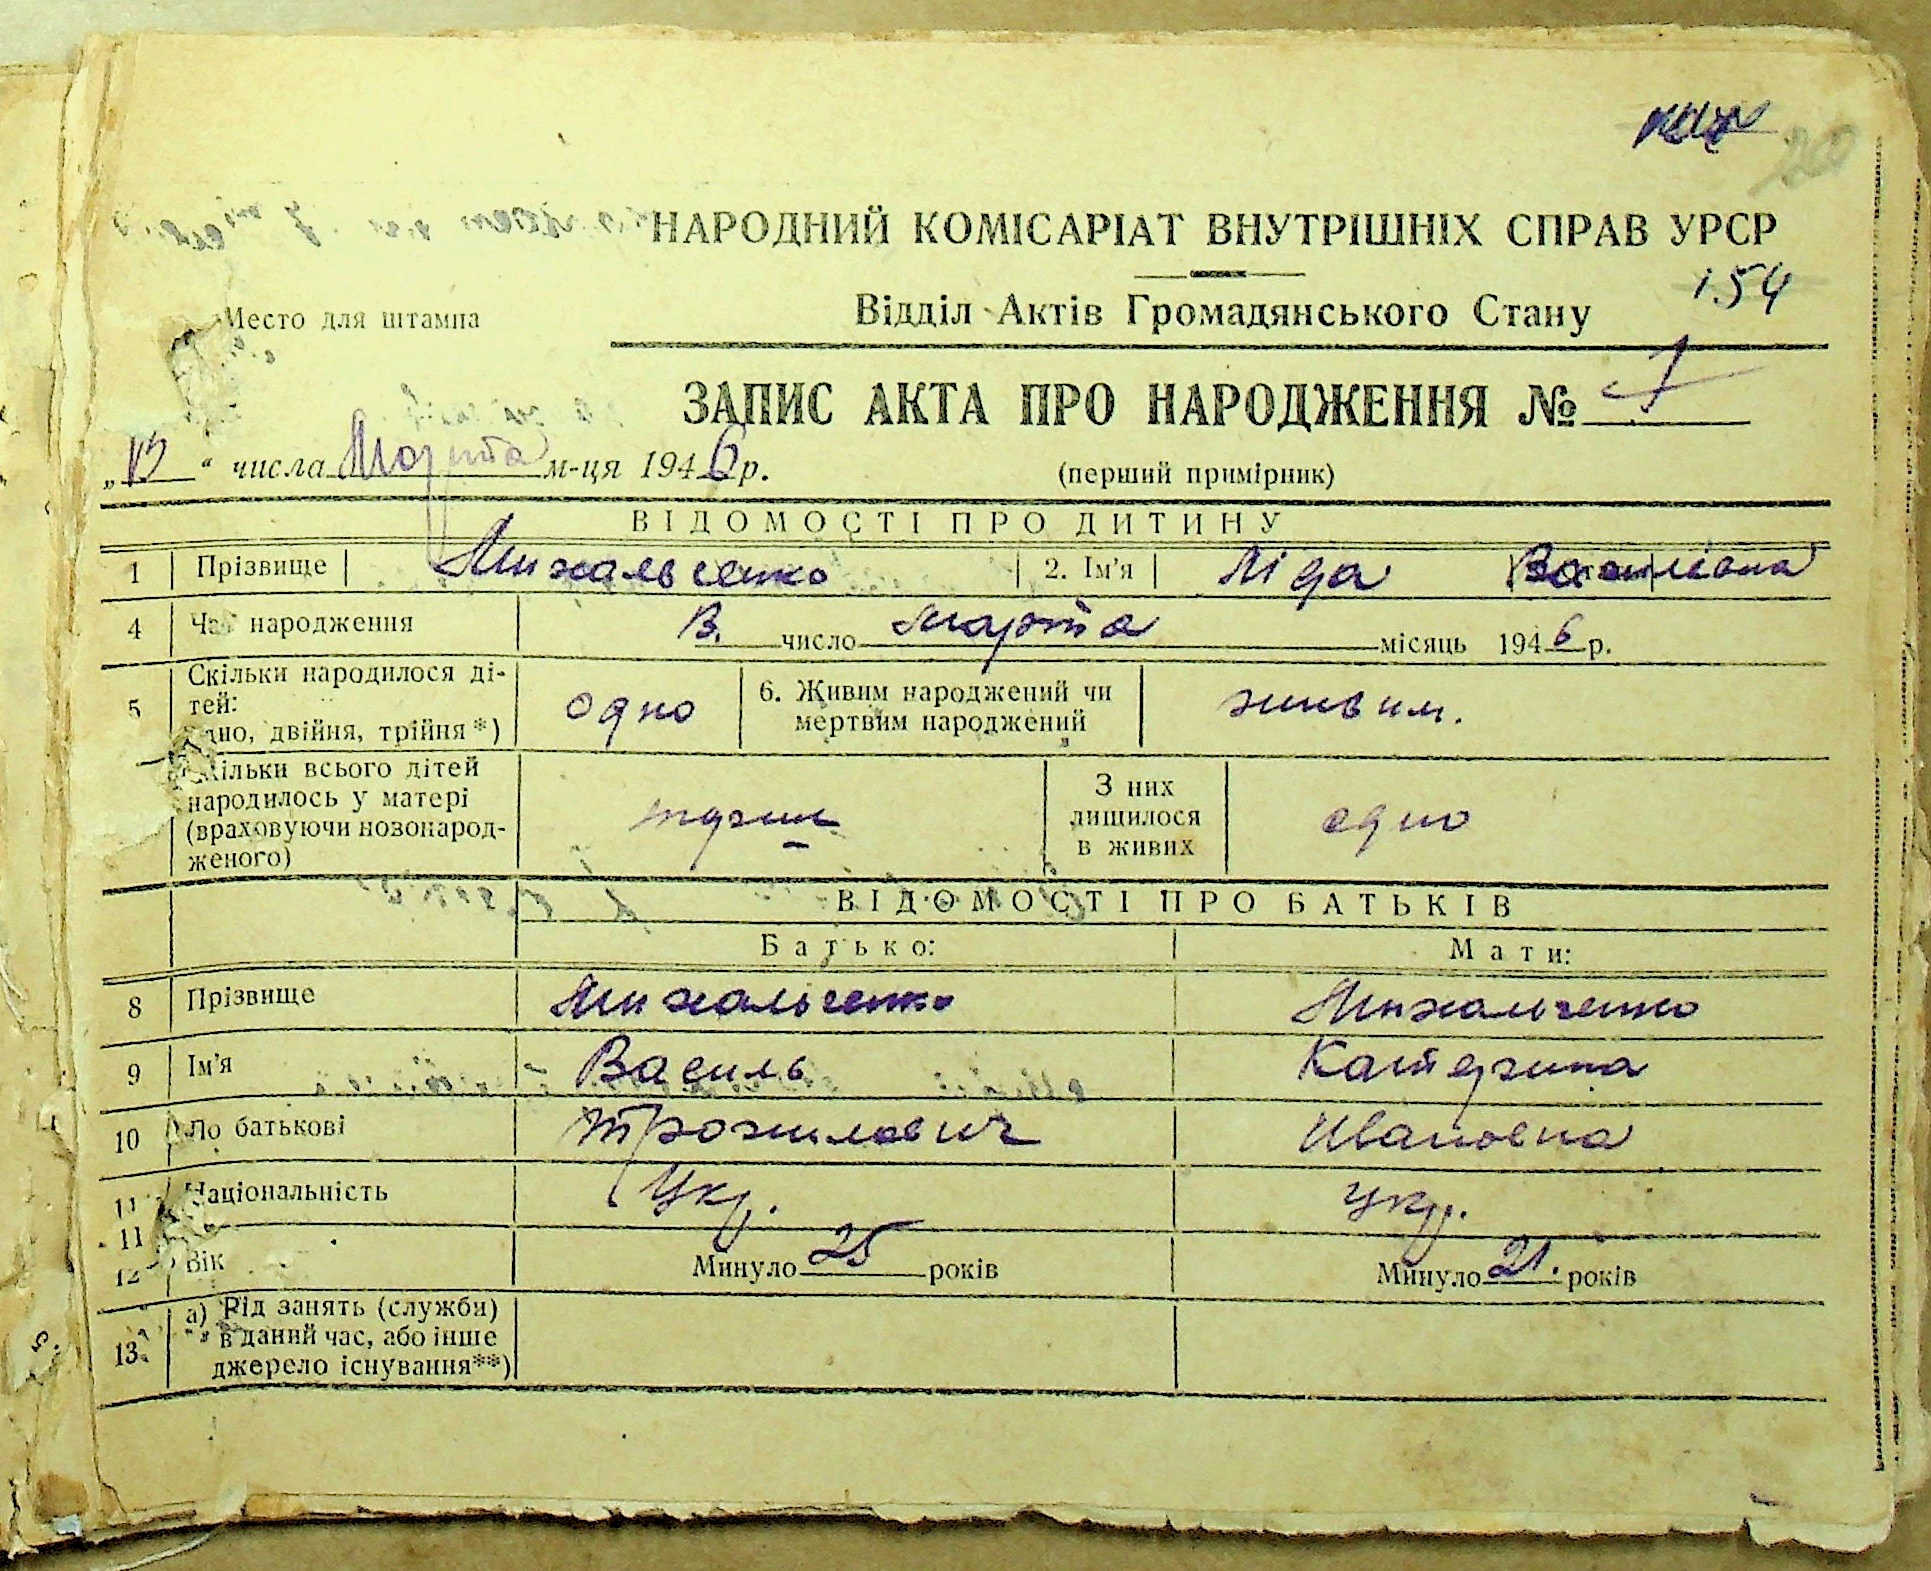 НАРОДНИЙ КОМІСАРІАТ ВНУТРІШНІХ СПРАВ УРСР
1.54
Место для штампа
Відділ Актів Громадянського Стану
ЗАПИС АКТА ПРО НАРОДЖЕННЯ № 7
" числа Марта м-ця 1946 р.
(перший примірник)
ВІДОМОСТІ ПРО ДИТИНУ
1 Прізвище Михальченко 2. Ім'я Ліда Василівна
4 Час народження число марта місяць 1946 р.
5 Скільки народилося ді-
тей:
одно, двійня, трійня *) одно 6. Живим народжений чи
мертвим народжений живим.
Скільки всього дітей
народилось у матері
(враховуючи новонарод-
женого)
З них
лишилося
в живих одно
ВІДОМОСТІ ПРО БАТЬКІВ
Батько: Мати:
8 Прізвище Михальченко Михальченко
9 Ім'я Василь Катерина
10 По батькові Трохимович Ивановна
11 Національність Укр. укр.
11
12 Вік Минуло 25 років Минуло 21. років
13. а) Рід занять (служби)
в даний час, або інше
джерело існування**)